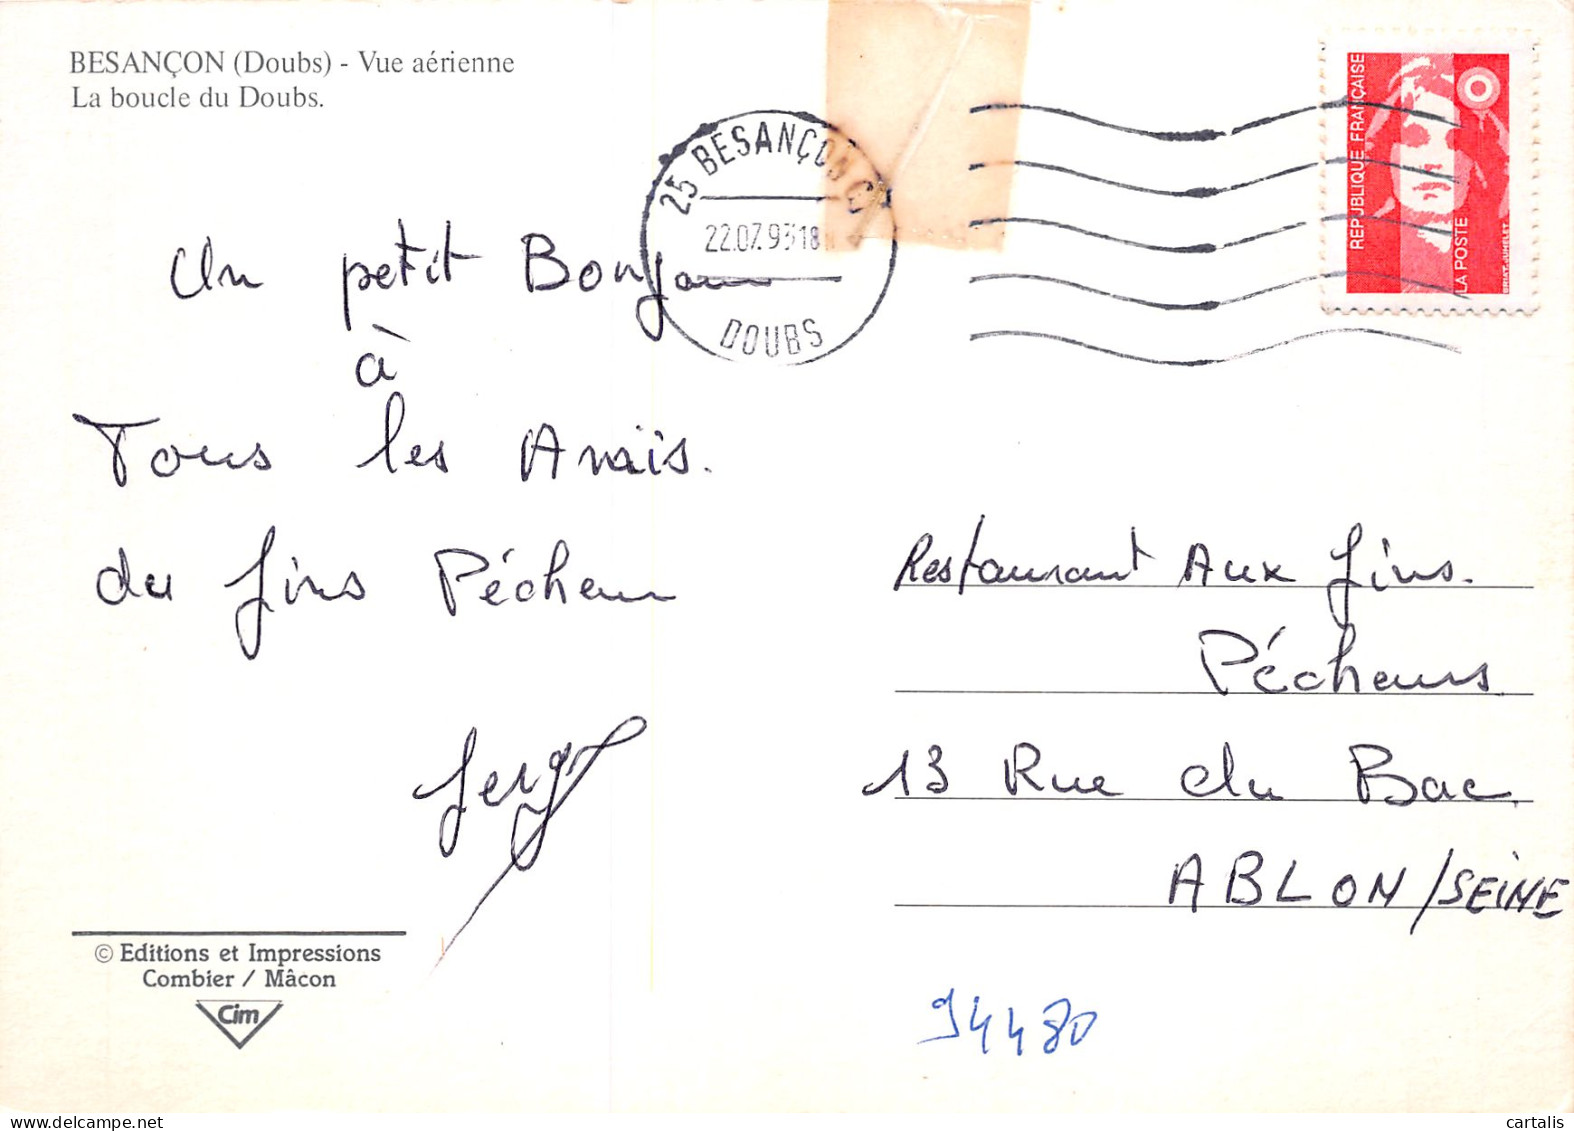 BESANÇON (Doubs) - Vue aérienne
La boucle du Doubs.
25 BESANÇON
22.07.93 18
DOUBS
REPUBLIQUE FRANÇAISE
LA POSTE
BRIAT. JUMELET
Un petit Bonjour
à
Tous les Amis.
du fins Pécheur
Serge
Restaurant Aux fins.
Pécheurs
13 Rue du Bac
ABLON/SEINE
94480
© Editions et Impressions
Combier / Mâcon
Cim
cartalis